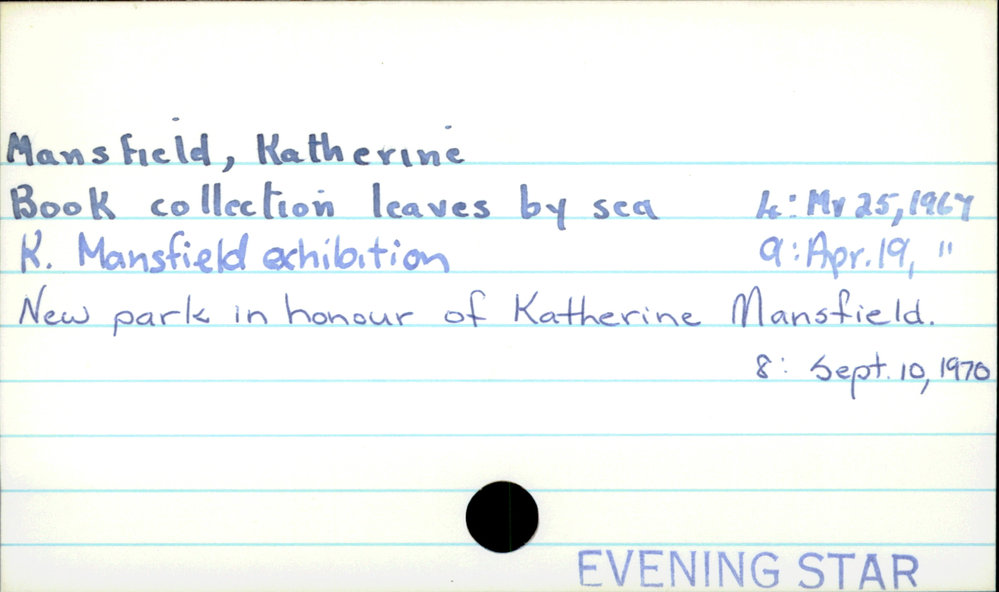 Mansfield, Katherine
Book collection leaves by sea 4: Mr 25, 1967
K. Mansfield exhibition 9: Apr. 19, "
New park in honour of Katherine Mansfield.
8: Sept. 10, 1970
EVENING STAR